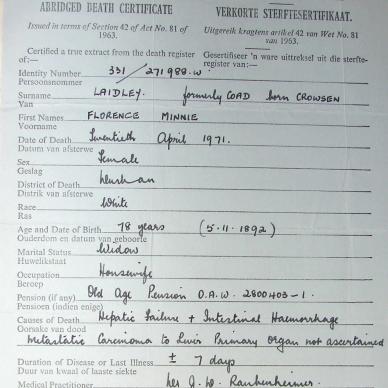 ABRIDGED DEATH CERTIFICATE
VERKORTE STERFTESERTIFIKAAT.
Issued in terms of Section 42 of Act No. 81 of 1963.
Uitgereik kragtens artikel 42 van Wet No. 81 van 1963.
Certified a true extract from the death register of:—
Gesertifiseer 'n ware uittreksel uit die sterfte-register van:—
Identity Number 331/271988.W.
Persoonsnommer
Surname LAIDLEY. formerly COAD born CROWSEN
Van
First Names FLORENCE MINNIE
Voorname
Date of Death Twentieth April 1971.
Datum van afsterwe
Sex Female
Geslag
District of Death Durban
Distrik van afsterwe
Race White
Ras
Age and Date of Birth 78 years (5.11.1892)
Ouderdom en datum van geboorte
Marital Status Widow
Huwelikstaat
Occupation Housewife
Beroep
Pension (if any) Old Age Pension O.A.W. 2800403-1.
Pensioen (indien enige)
Causes of Death Hepatic Failure + Intestinal Haemorrhage
Oorsake van dood
Metastatic Carcinoma to Liver Primary Organ not ascertained
Duration of Disease or Last Illness ± 7 days
Duur van kwaal of laaste siekte
Medical Practitioner W. Raubenheimer.